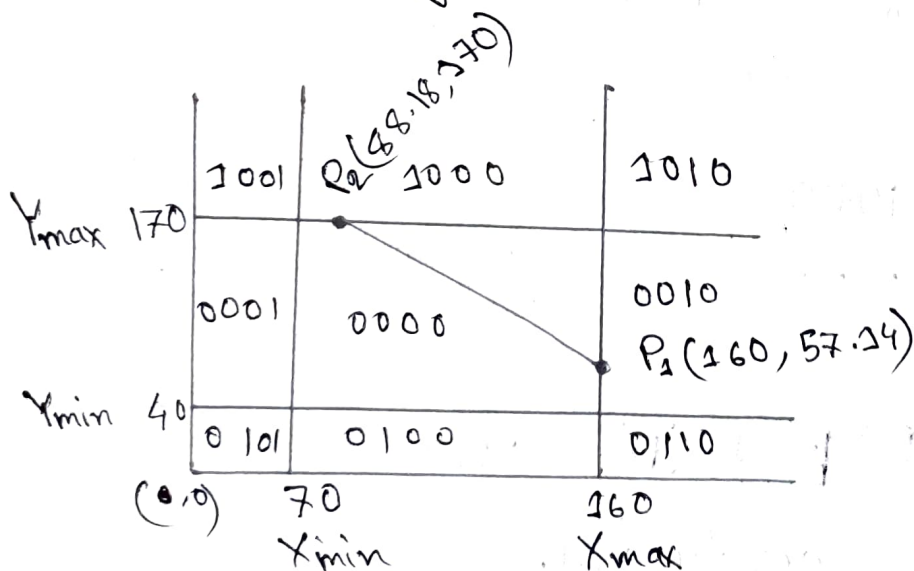 P2(88.18,170)
1001 1000 1010
Ymax 170
0001 0000 0010
P1(160, 57.14)
Ymin 40
0101 0100 0110
(0,0) 70 160
Xmin Xmax